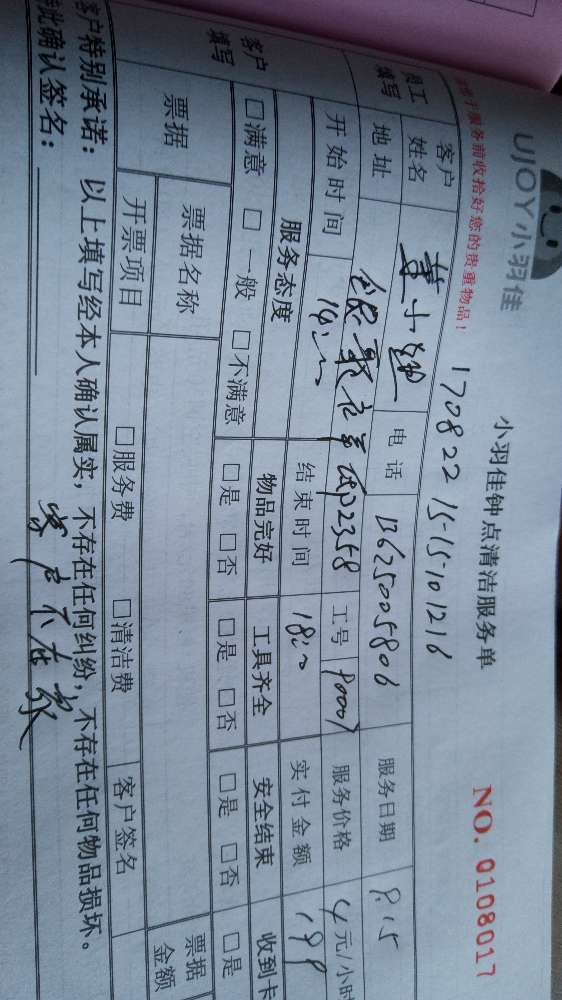 UJOY小羽佳
小羽佳钟点清洁服务单
NO. 0108017
服务前收拾好您的贵重物品!
170822 15-15-101216
员工填写
客户姓名
电话
13625005806
服务日期
8.15
地址
工号
服务价格
元/小时
开始时间
14:00
结束时间
18:00
实付金额
199
客户填写
服务态度
物品完好
工具齐全
安全结束
收到卡
□满意 □一般 □不满意
□是 □否
□是 □否
□是 □否
□是
票据
票据名称
票据金额
开票项目
□服务费 □清洁费
客户签名
客户特别承诺:以上填写经本人确认属实,不存在任何纠纷,不存在任何物品损坏。
特此确认签名:
客户不在家